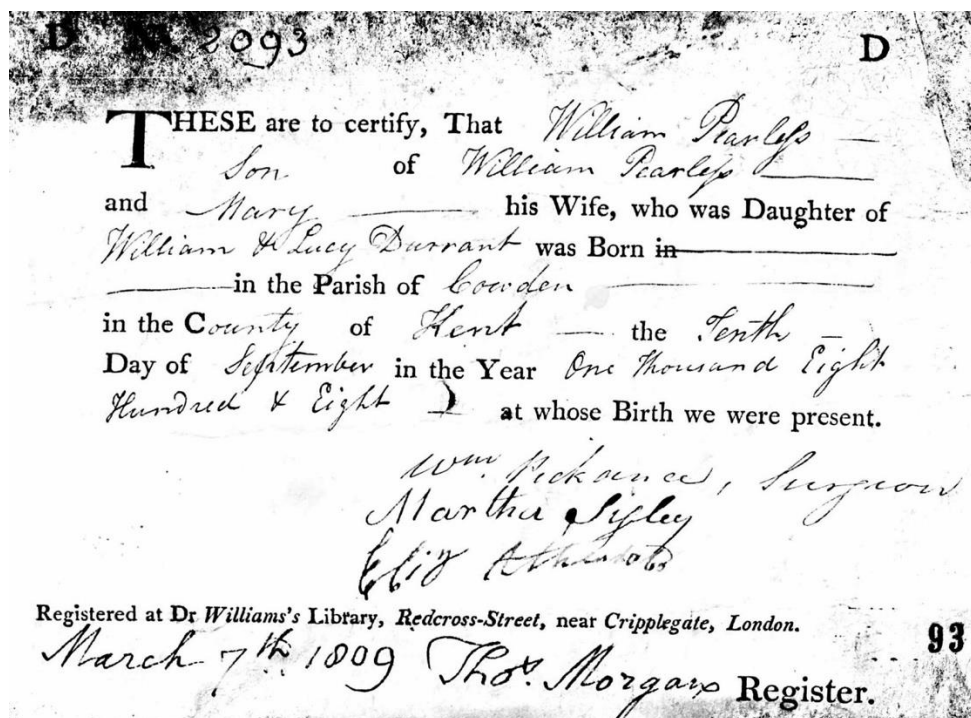 D No 2093 D
THESE are to certify, That William Pearless
Son of William Pearless
and Mary his Wife, who was Daughter of
William & Lucy Durrant was Born in
in the Parish of Cowden
in the County of Kent the Tenth
Day of September in the Year One Thousand Eight
Hundred & Eight at whose Birth we were present.
Wm. Pickance, Surgeon
Martha Sisley
Eliz
Registered at Dr Williams's Library, Redcross-Street, near Cripplegate, London.
93
March 7th 1809 Thos. Morgan Register.